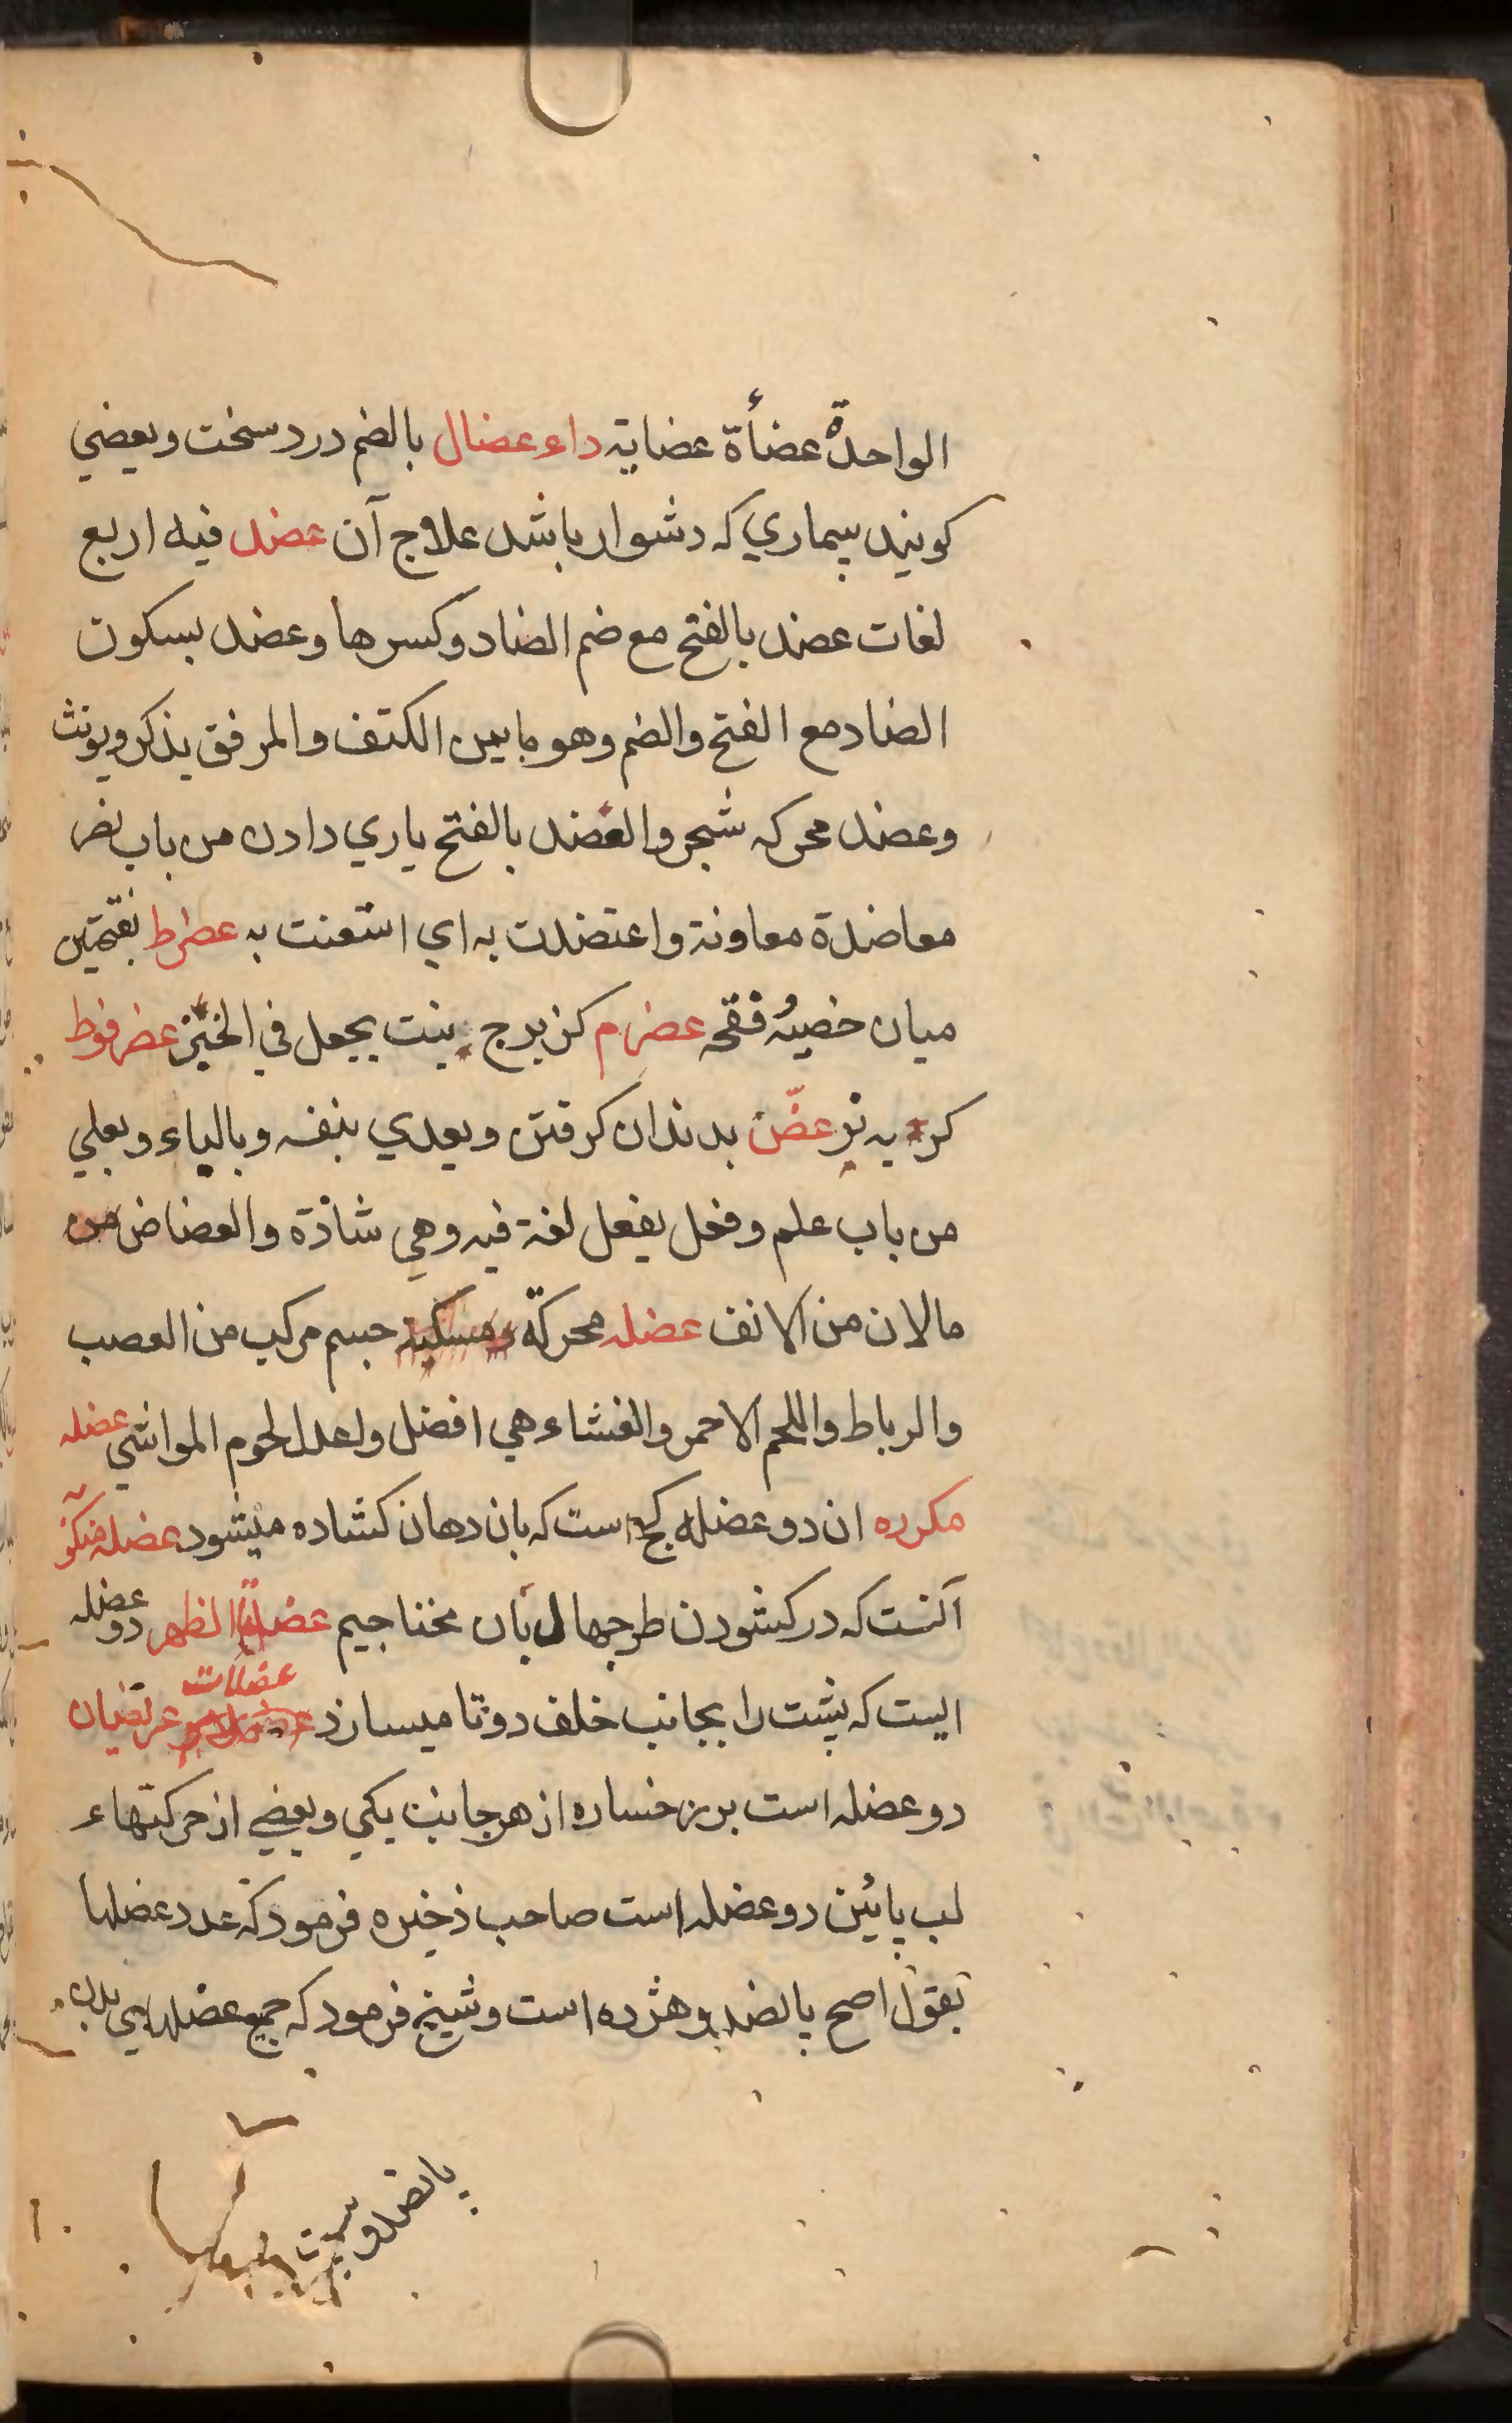 الواحدةٌ عضأة عضایة داء عضال بالضم درد سخت وبعضي
کویند بیماري که دشوار باشد علاج آن عضد فیه اربع
لغات عضد بالفتح مع ضم الضاد وکسرها وعضد بسکون
الضاد مع الفتح والضم وهو مابین الکتف والمرفق یذکر ویونث
وعضد محرکه شجر والعضد بالفتح یاري دادن من باب نصر
معاضدة معاونة واعتضدت به اي استعنت به عضرط بفتحتین
میان خصیه فقحه عضرم کزبرج بنت یجعل في الخبز عضرفوط
کربه نر عضّ بدندان کرفتن ویعدي بنفسه وبالباء وبعلي
من باب علم وفعل یفعل لغة فیه وهي شاذة والعضاض من
مالان من الانف عضله محرکّة جسم مرکب من العصب
والرباط واللحم الاحمر والغشاء هي افضل واعدل لحوم المواشي عضله
مکرره ان دو عضله کج است که بان دهان کشاده میشود عضله
آنست که در کشودن طرجهال بان محتاجیم الظهر دو عضله
ایست که پشت را بجانب خلف دوتا میسازد عضلات عریضان
دو عضله است بر رخساره از هر جانب یکي وبعضي از حرکتهاء
لب پائین دو عضله است صاحب ذخیره فرمود که عدد عضلها
بقول اصح پانصد وهژده است وشیخ فرمود که جمیع عضلهاي بدن
پانصد وبیست